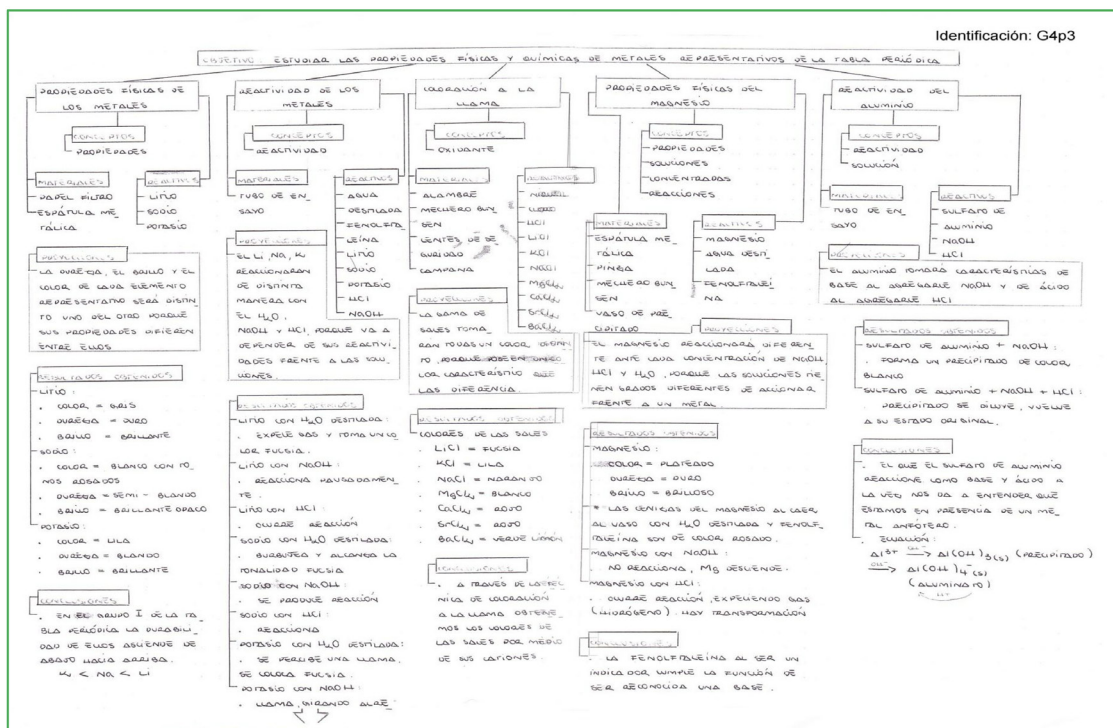 Identificación: G4p3
OBJETIVO: ESTUDIAR LAS PROPIEDADES FÍSICAS Y QUÍMICAS DE METALES REPRESENTATIVOS DE LA TABLA PERIÓDICA
PROPIEDADES FÍSICAS DE
LOS METALES
CONCEPTOS
PROPIEDADES
MATERIALES
PAPEL FILTRO
ESPÁTULA ME_
TÁLICA
REACTIVOS
LITIO
SODIO
POTASIO
PROYECCIONES
LA DUREZA, EL BRILLO Y EL
COLOR DE CADA ELEMENTO
REPRESENTATIVO SERÁ DISTIN_
TO UNO DEL OTRO PORQUE
SUS PROPIEDADES DIFIEREN
ENTRE ELLOS
RESULTADOS OBTENIDOS
LITIO:
. COLOR = GRIS
. DUREZA = DURO
. BRILLO = BRILLANTE
SODIO:
. COLOR = BLANCO CON TO_
NOS ROSADOS
. DUREZA = SEMI - BLANDO
. BRILLO = BRILLANTE OPACO
POTASIO:
. COLOR = LILA
. DUREZA = BLANDO
. BRILLO = BRILLANTE
CONCLUSIONES
. EN EL GRUPO I DE LA TA_
BLA PERIÓDICA LA DURABILI_
DAD DE ELLOS ASCIENDE DE
ABAJO HACIA ARRIBA.
K < Na < Li
REACTIVIDAD DE LOS
METALES
CONCEPTOS
REACTIVIDAD
MATERIALES
TUBO DE EN_
SAYO
REACTIVOS
AGUA
DESTILADA
FENOLFTA_
LEÍNA
LITIO
SODIO
POTASIO
HCl
NaOH
PROYECCIONES
EL Li, Na, K
REACCIONARAN
DE DISTINTA
MANERA CON
EL H2O,
NaOH Y HCl, PORQUE VA A
DEPENDER DE SUS REACTIVI_
DADES FRENTE A LAS SOLU_
CIONES.
RESULTADOS OBTENIDOS
LITIO CON H2O DESTILADA:
. EXPELE GAS Y TOMA UN CO_
LOR FUCSIA.
LITIO CON NaOH:
. REACCIONA PAUSADAMEN_
TE.
LITIO CON HCl:
. OCURRE REACCIÓN
SODIO CON H2O DESTILADA:
. BURBUJEA Y ALCANZA LA
TONALIDAD FUCSIA
SODIO CON NaOH:
. SE PRODUCE REACCIÓN
SODIO CON HCl:
. REACCIONA
POTASIO CON H2O DESTILADA:
. SE PERCIBE UNA LLAMA.
SE COLOCA FUCSIA.
POTASIO CON NaOH:
. LLAMA, GIRANDO ALRE_
COLORACIÓN A LA
LLAMA
CONCEPTOS
OXIDANTE
MATERIALES
ALAMBRE
MECHERO BUN_
SEN
LENTES DE SE_
GURIDAD
CAMPANA
REACTIVOS
HCl
LiCl
KCl
NaCl
MgCl2
CaCl2
SrCl2
BaCl2
PROYECCIONES
LA GAMA DE
SALES TOMA_
RAN TODAS UN COLOR DISTIN_
TO, PORQUE POSEEN UN CO_
LOR CARACTERÍSTICO QUE
LAS DIFERENCIA.
RESULTADOS OBTENIDOS
COLORES DE LAS SALES
. LiCl = FUCSIA
. KCl = LILA
. NaCl = NARANJO
. MgCl2 = BLANCO
. CaCl2 = ROJO
. SrCl2 = ROJO
. BaCl2 = VERDE LIMÓN
CONCLUSIONES
. A TRAVÉS DE LA TÉC_
NICA DE COLORACIÓN
A LA LLAMA OBTENE_
MOS LOS COLORES DE
LAS SALES POR MEDIO
DE SUS CATIONES.
PROPIEDADES FÍSICAS DEL
MAGNESIO
CONCEPTOS
PROPIEDADES
SOLUCIONES
CONCENTRADAS
REACCIONES
MATERIALES
ESPÁTULA ME_
TÁLICA
PINZA
MECHERO BUN_
SEN
VASO DE PRE_
CIPITADO
REACTIVOS
MAGNESIO
AGUA DESTI_
LADA
FENOLFTALEÍ_
NA
PROYECCIONES
EL MAGNESIO REACCIONARÁ DIFEREN_
TE ANTE CADA CONCENTRACIÓN DE NaOH
HCl Y H2O, PORQUE LAS SOLUCIONES TIE_
NEN GRADOS DIFERENTES DE ACCIONAR
FRENTE A UN METAL.
RESULTADOS OBTENIDOS
MAGNESIO:
COLOR = PLATEADO
DUREZA = DURO
BRILLO = BRILLOSO
* LAS CENIZAS DEL MAGNESIO AL CAER
AL VASO CON H2O DESTILADA Y FENOLF_
TALEÍNA SON DE COLOR ROSADO.
MAGNESIO CON NaOH:
. NO REACCIONA, Mg DESCIENDE.
MAGNESIO CON HCl:
. OCURRE REACCIÓN, EXPELIENDO GAS
(HIDRÓGENO). HAY TRANSFORMACIÓN
CONCLUSIONES
. LA FENOLFTALEÍNA AL SER UN
INDICADOR CUMPLE LA FUNCIÓN DE
SER RECONOCIDA UNA BASE.
REACTIVIDAD DEL
ALUMINIO
CONCEPTOS
REACTIVIDAD
SOLUCIÓN
MATERIALES
TUBO DE EN_
SAYO
REACTIVOS
SULFATO DE
ALUMINIO
NaOH
HCl
PROYECCIONES
EL ALUMINIO TOMARÁ CARACTERÍSTICAS DE
BASE AL AGREGARLE NaOH Y DE ÁCIDO
AL AGREGARLE HCl
RESULTADOS OBTENIDOS
SULFATO DE ALUMINIO + NaOH:
. FORMA UN PRECIPITADO DE COLOR
BLANCO
SULFATO DE ALUMINIO + NaOH + HCl:
. PRECIPITADO SE DILUYE, VUELVE
A SU ESTADO ORIGINAL.
CONCLUSIONES
. EL QUE EL SULFATO DE ALUMINIO
REACCIONE COMO BASE Y ÁCIDO A
LA VEZ NOS DA A ENTENDER QUE
ESTAMOS EN PRESENCIA DE UN ME_
TAL ANFÓTERO.
. ECUACIÓN:
Al3+ OH-→ Al(OH)3(s) (PRECIPITADO)
OH-→ Al(OH)4-(s)
(ALUMINATO)
H+